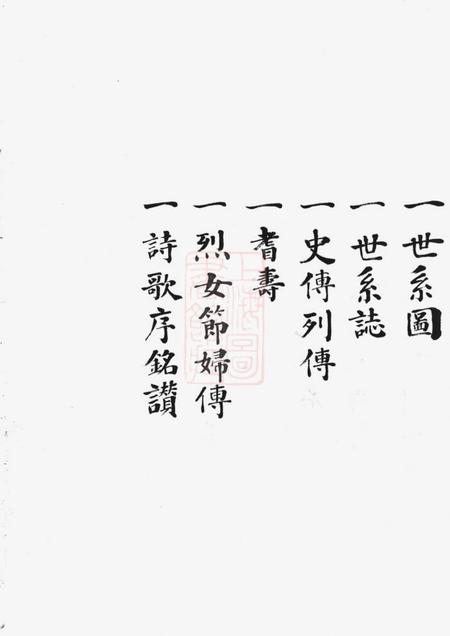 一世系圖
一世系誌
一史傳列傳
一耆壽
一烈女節婦傳
一詩歌序銘讃